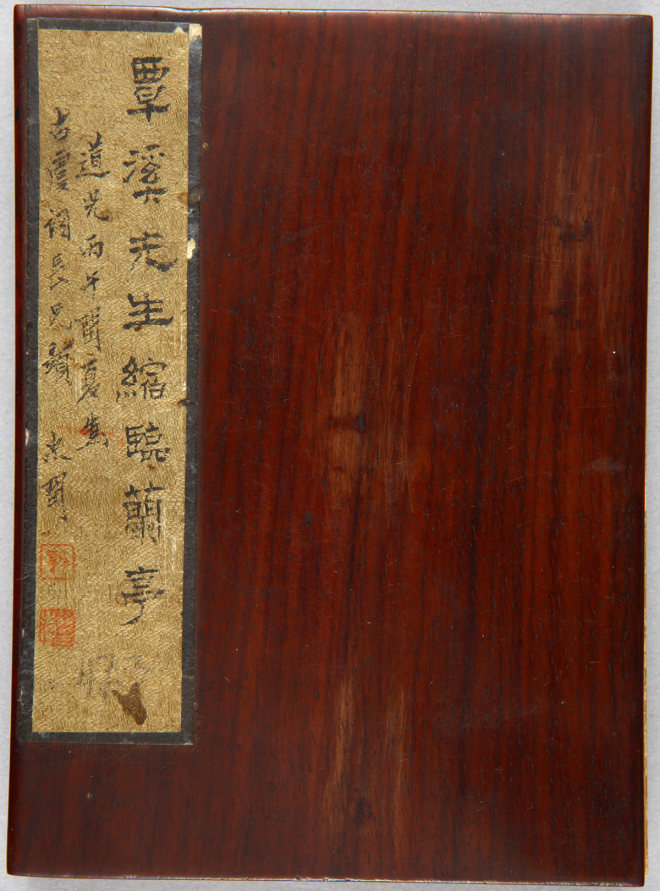 覃溪先生縮臨蘭亭
道光丙午閏夏為
古雲詞長兄題